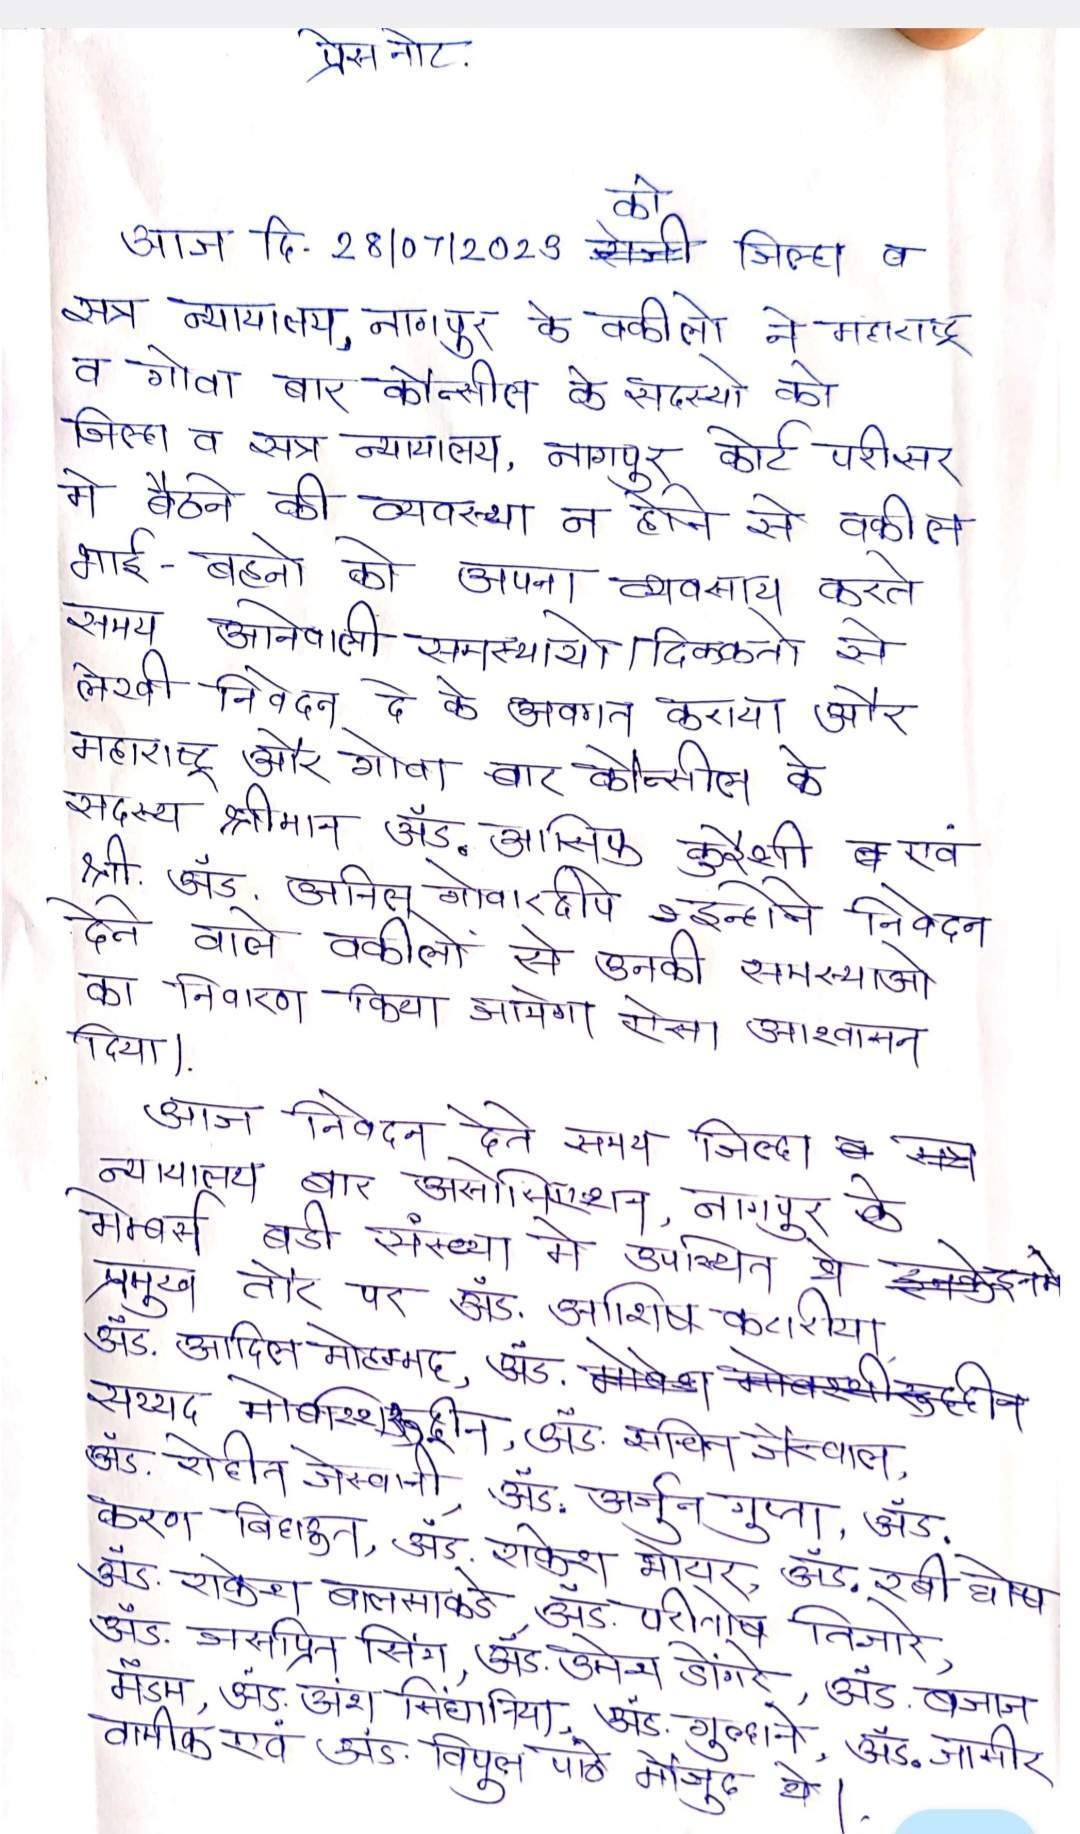 प्रेस नोट.
को
आज दि. 28/07/2023 जिल्हा व
सत्र न्यायालय, नागपुर के वकीलो ने महाराष्ट्र
व गोवा बार कौन्सील के सदस्यो को
जिल्हा व सत्र न्यायालय, नागपुर कोर्ट परीसर
मे बैठने की व्यवस्था न होने से वकील
भाई - बहनो को अपना व्यवसाय करते
समय आनेवाली समस्यायो / दिक्कतो से
लेखी निवेदन दे के अवगत कराया और
महाराष्ट्र और गोवा बार कौन्सील के
सदस्य श्रीमान ॲड. आसिफ कुरैशी एवं
श्री. ॲड. अनिल गोवारदीपे इन्होने निवेदन
देने वाले वकीलों से उनकी समस्याओ
का निवारण किया जायेगा ऐसा आश्वासन
दिया।.
आज निवेदन देते समय जिल्हा व सत्र
न्यायालय बार असोसिएशन, नागपुर के
मेम्बर्स बडी संख्या मे उपस्थित थे इनमे
प्रमुख तौर पर ॲड. आशिष कटारीया,
ॲड. आदिल मोहम्मद, ॲड.
सय्यद मोबाश्शीरुद्दीन, ॲड. सचिन जैस्वाल,
ॲड. रोहीत जेस्वानी, ॲड. अर्जुन गुप्ता, ॲड.
करण ॲड. राकेश भोयर, ॲड. रवी घोष
ॲड. राकेश बालसाकडे, ॲड. परीतोष तिजारे,
ॲड. जसप्रित सिंग, ॲड. उमेश डोंगरे, ॲड. बजाज
मॅडम, ॲड. अंश सिंघानिया, ॲड. गुल्हाने, ॲड. जामीर
वामीक एवं ॲड. विपुल पाठे मौजुद थे।.